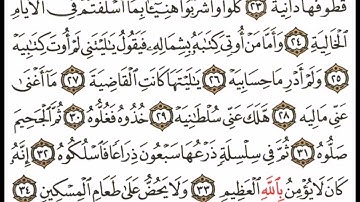 قُطُوفُهَا دَانِيَةٌ ٢٣ كُلُوا۟ وَٱشْرَبُوا۟ هَنِيٓـًٔۢا بِمَآ أَسْلَفْتُمْ فِى ٱلْأَيَّامِ
ٱلْخَالِيَةِ ٢٤ وَأَمَّا مَنْ أُوتِىَ كِتَٰبَهُۥ بِشِمَالِهِۦ فَيَقُولُ يَٰلَيْتَنِى لَمْ أُوتَ كِتَٰبِيَهْ
٢٥ وَلَمْ أَدْرِ مَا حِسَابِيَهْ ٢٦ يَٰلَيْتَهَا كَانَتِ ٱلْقَاضِيَةَ ٢٧ مَآ أَغْنَىٰ
عَنِّى مَالِيَهْ ٢٨ هَلَكَ عَنِّى سُلْطَٰنِيَهْ ٢٩ خُذُوهُ فَغُلُّوهُ ٣٠ ثُمَّ ٱلْجَحِيمَ
صَلُّوهُ ٣١ ثُمَّ فِى سِلْسِلَةٍ ذَرْعُهَا سَبْعُونَ ذِرَاعًا فَٱسْلُكُوهُ ٣٢ إِنَّهُۥ
كَانَ لَا يُؤْمِنُ بِٱللَّهِ ٱلْعَظِيمِ ٣٣ وَلَا يَحُضُّ عَلَىٰ طَعَامِ ٱلْمِسْكِينِ ٣٤